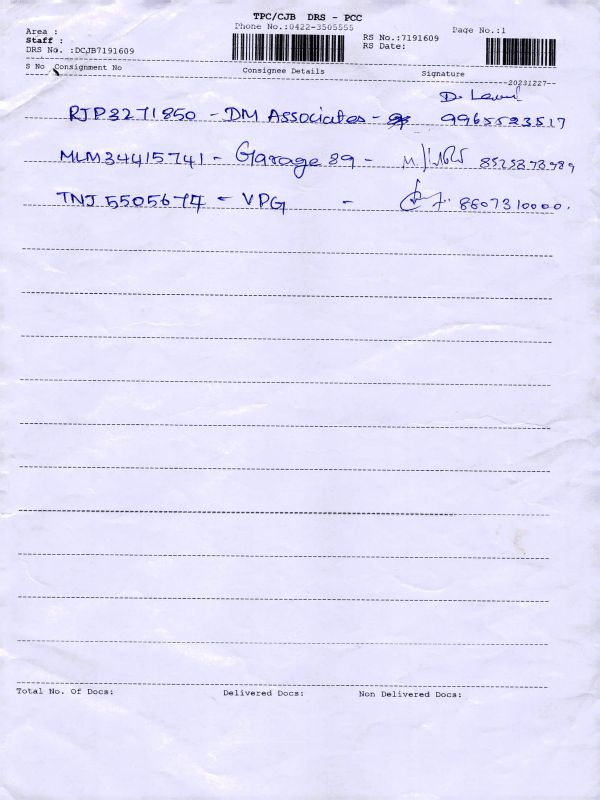 TPC/CJB DRS - PCC
Phone No.:0422-3505555
Page No.:1
Area :
Staff :
DRS No. :DCJB7191609
RS No.:7191609
RS Date:
S No Consignment No Consignee Details Signature
--20231227--
RJP3271850 - DM Associates - 9965523517
MLM34415741 - Garage 89 -
TNJ 5505674 - VPG - 8607310000.
Total No. Of Docs: Delivered Docs: Non Delivered Docs: